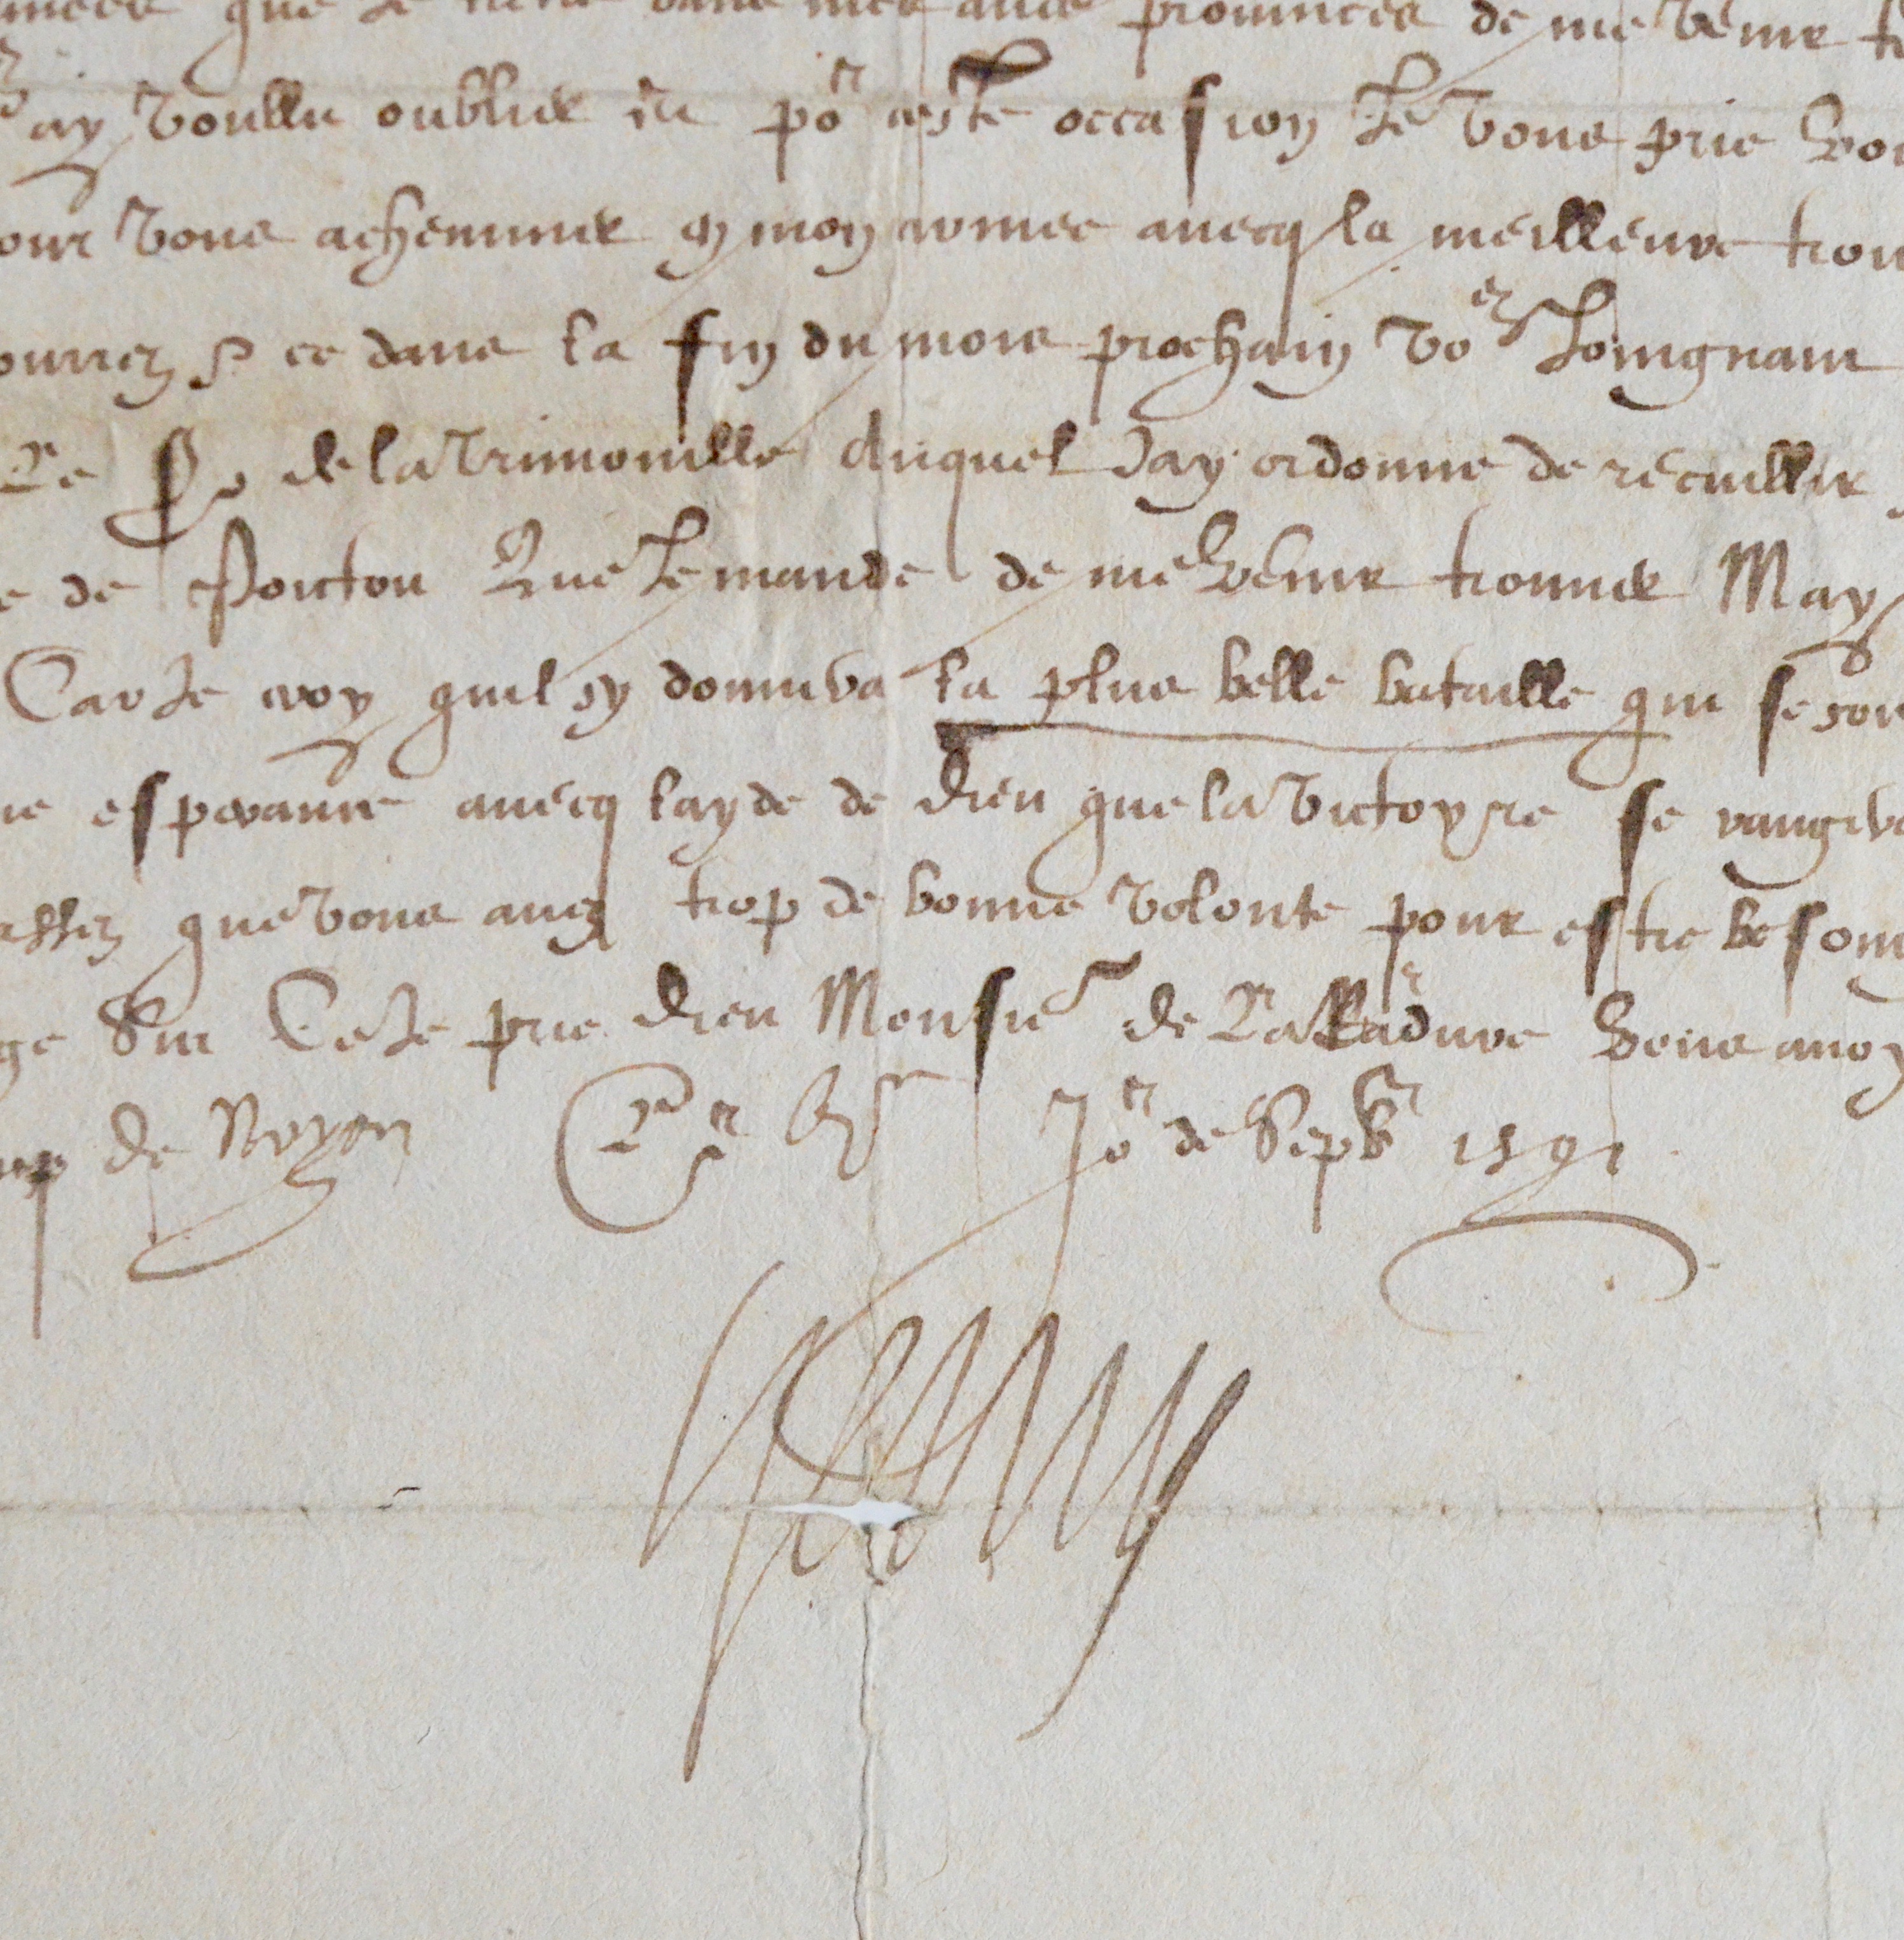 que je tiens dans mes autres prouinces de me venir
ay voullu oublier Et po.r ceste occasion Je vous prie
our vous acheminer en mon armee auecq la meilleure trou
ourrez & ce dans la fin du mois prochain vo.us Joingnant
le S.r de la Trimouille Auquel Jay ordonne de recuillir
e de Poictou Que Je mande de me venir trouuer May
Car Je croy quil sy donnera la plus belle bataille qui se soit
ne esperance auecq layde de dieu que la victoyre se rangera
assez que vous auez trop de bonne volonte pour estre besoing
ge Sur Ce Je prie dieu Monsie.r de vous auoy
mp de Noyon Jo.r de Sept.bre 1591
Henry